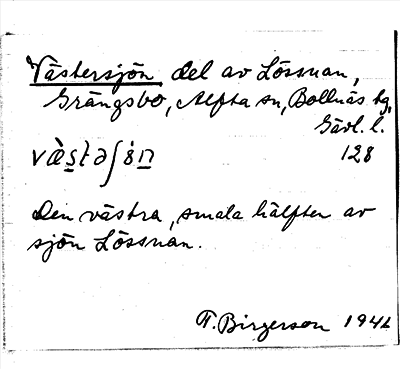 Västersjön, del av Lössnan,
Grängsbo, Alfta sn, Bollnäs tg,
Gävl. l.
128
Den västra, smala hälften av
sjön Lössnan.
T. Birgerson 1941